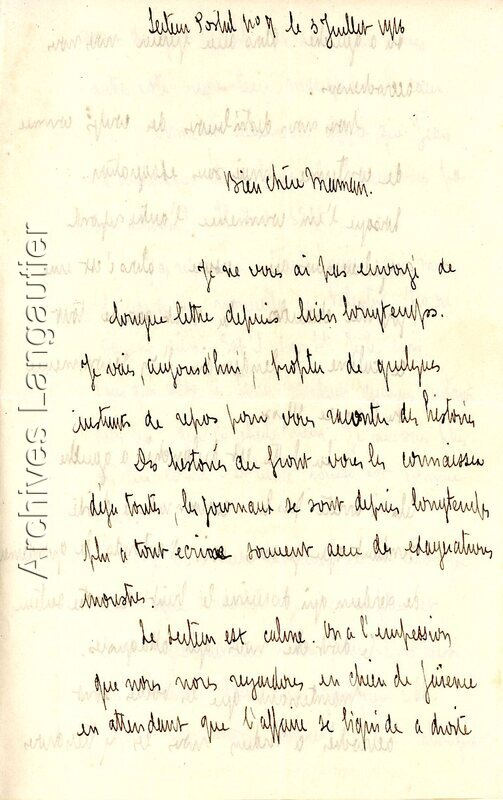 Secteur Postal No 9 le 3 Juillet 1916
Bien chère Maman.
Je ne vous ai pas envoyé de
longue lettre depuis bien longtemps.
Je vais, aujourd'hui, profiter de quelques
instants de repos pour vous raconter des histoires
Des histoires du front vous les connaissez
déjà toutes, les journaux se sont depuis longtemps
plu a tout ecrire souvent avec des exagérations
monstres.
Le secteur est calme. On a l'impression
que nous nous regardons en chien de faïence
en attendant que l'affaire se liquide a droite
Archives Langautier